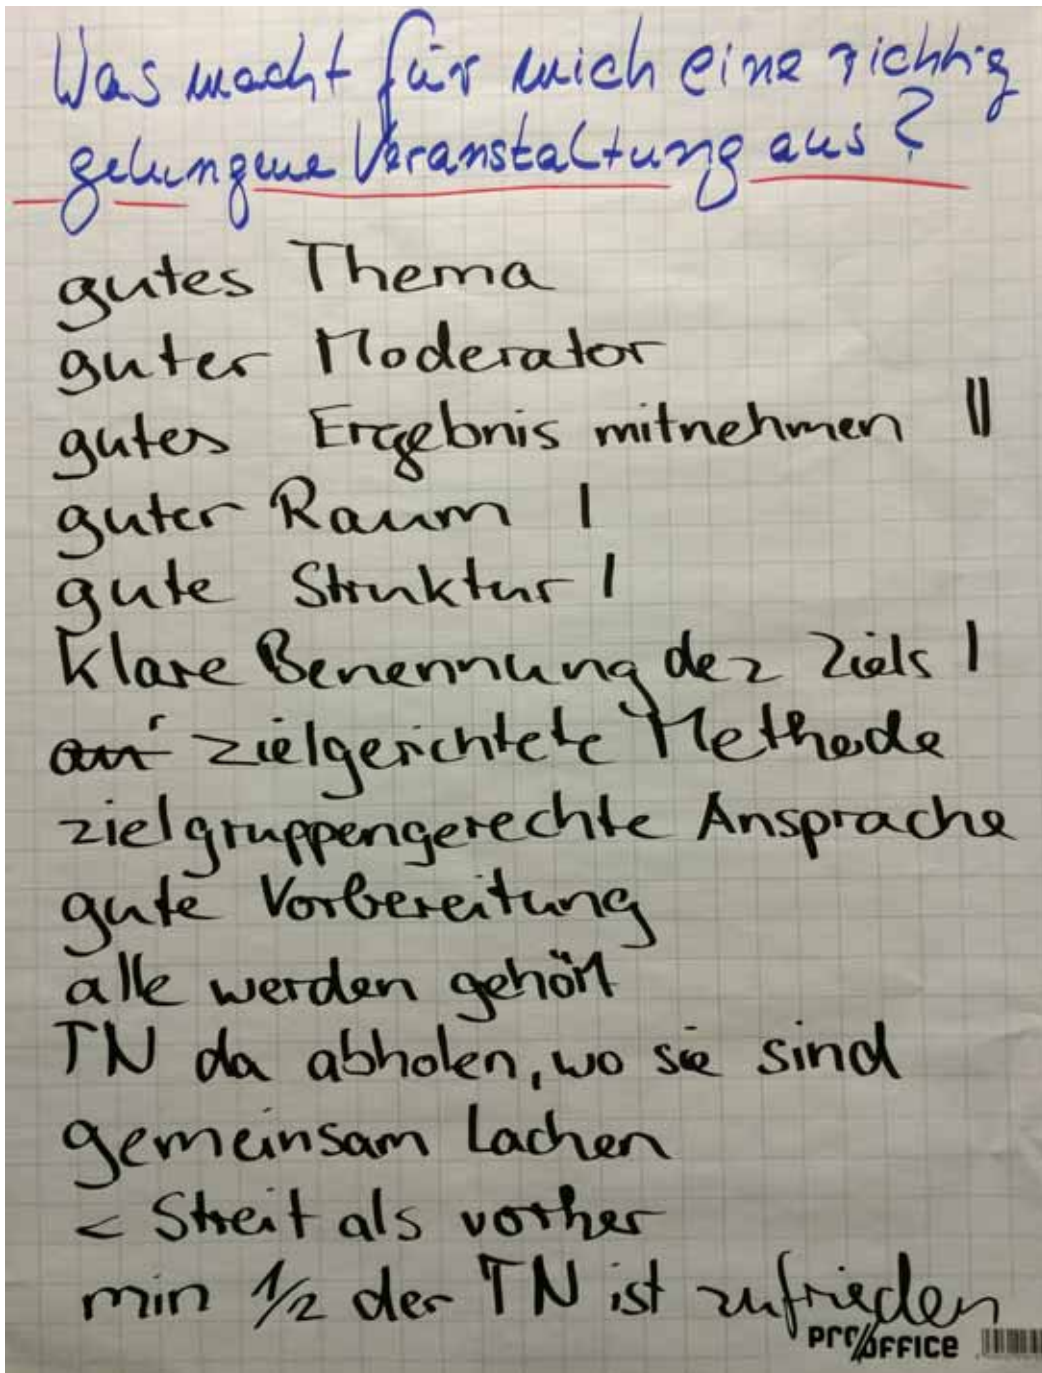 Was macht für mich eine richtig
gelungene Veranstaltung aus?
gutes Thema
guter Moderator
gutes Ergebnis mitnehmen ||
guter Raum |
gute Struktur |
klare Benennung des Ziels |
zielgerichtete Methode
zielgruppengerechte Ansprache
gute Vorbereitung
alle werden gehört
TN da abholen, wo sie sind
gemeinsam Lachen
< Streit als vorher
min 1/2 der TN ist zufrieden
pro/OFFICE